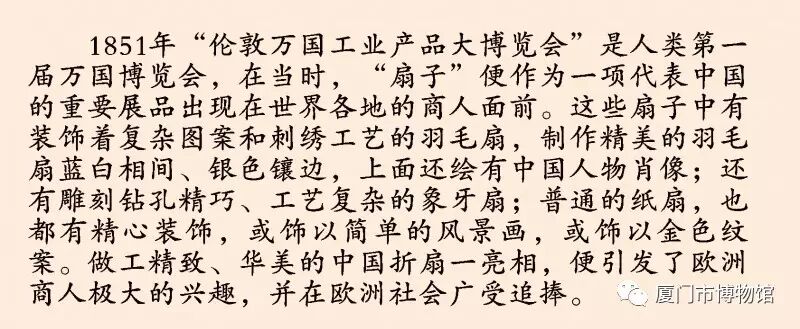 1851年“伦敦万国工业产品大博览会”是人类第一
届万国博览会，在当时，“扇子”便作为一项代表中国
的重要展品出现在世界各地的商人面前。这些扇子中有
装饰着复杂图案和刺绣工艺的羽毛扇，制作精美的羽毛
扇蓝白相间、银色镶边，上面还绘有中国人物肖像；还
有雕刻钻孔精巧、工艺复杂的象牙扇；普通的纸扇，也
都有精心装饰，或饰以简单的风景画，或饰以金色纹
案。做工精致、华美的中国折扇一亮相，便引发了欧洲
商人极大的兴趣，并在欧洲社会广受追捧。
厦门市博物馆